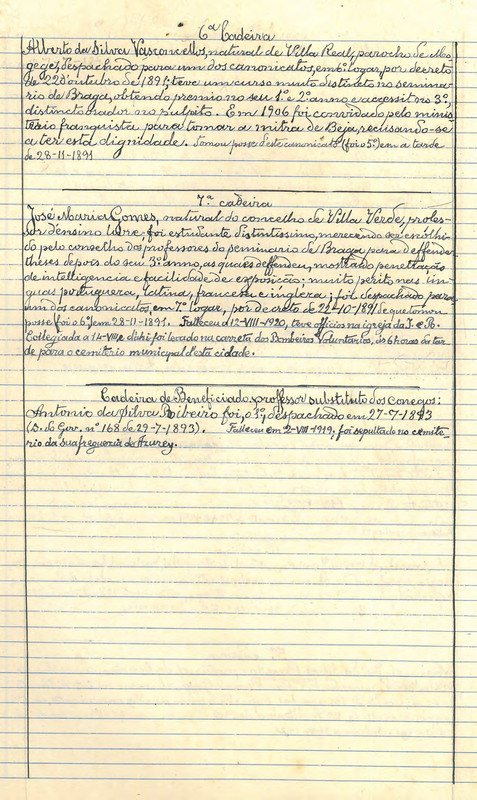 6ª Cadeira
Alberto da Silva Vasconcellos, natural de Villa Real, parocho de Mo-
gege, despachado para um dos canonicatos, em 6º logar, por decreto
de 22 d'outubro de 1891; teve um curso muito distincto no semina-
rio de Braga, obtendo premio no seu 1º e 2º anno, e accessit no 3º,
distincto orador no pulpito. Em 1906 foi convidado pelo minis-
terio franquista para tomar a mitra de Beja, recusando-se
a ter esta dignidade. Tomou posse d'este canonicato (foi o 5º) em a tarde
de 28-11-1891
7ª cadeira
José Maria Gomes, natural do concelho de Villa Verde, profes-
sor d'ensino livre, foi estudante distintissimo, merecendo ser escolhi-
do pelo conselho dos professores do seminario de Braga para deffender
theses depois do seu 3º anno, as quaes deffendeu, mostrando penetração
de intelligencia e facilidade de exposição; muito perito nas lin-
guas portugueza, latina, franceza e ingleza; foi despachado para
um dos canonicatos, em 7º logar, por decreto de 22-10-1891 de que tomou
posse foi o 6º em 28-11-1891. Falleceu a 12-VIII-1920, teve officios na igreja da I. e R.
Collegiada a 14-VIII, e d'ahi foi levado na carreta dos Bombeiros Voluntarios, ás 6 horas da tar-
de para o cemiterio municipal d'esta cidade.
Cadeira de Beneficiado, professor substituto dos conegos:
Antonio da Silva Ribeiro foi, o 3º, despachado em 27-7-1893
(D. do Gov. nº 168 de 29-7-1893). Falleceu em 2-VIII-1919; foi sepultado no cemite-
rio da sua freguezia de Azurey.